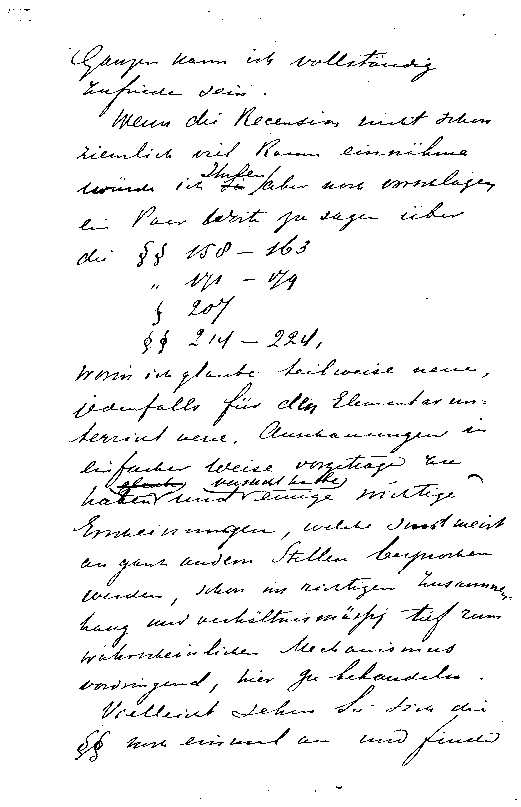 Ganzen kann ich vollständig
zufrieden sein.
Wenn die Recension nicht schon
ziemlich viel Raum einnähme
würde ich Ihnen aber noch vorschlagen,
ein Paar Worte zu sagen über
die §§ 158 – 163
" 171 – 179
§ 207
§§ 214 – 224,
worin ich glaube teilweise neue,
jedenfalls für den Elementarun-
terricht neue, Anschauungen in
einfacher Weise vorgetragen zu
haben und einige wichtige
Erscheinungen, welche sonst meist
an ganz andern Stellen besprochen
werden, schon im richtigen Zusammen-
hang und verhältnismässig tief zum
wahrscheinlichen Mechanismus
vordringend, hier zu behandeln.
Vielleicht sehen Sie sich die
§§ noch einmal an und finden